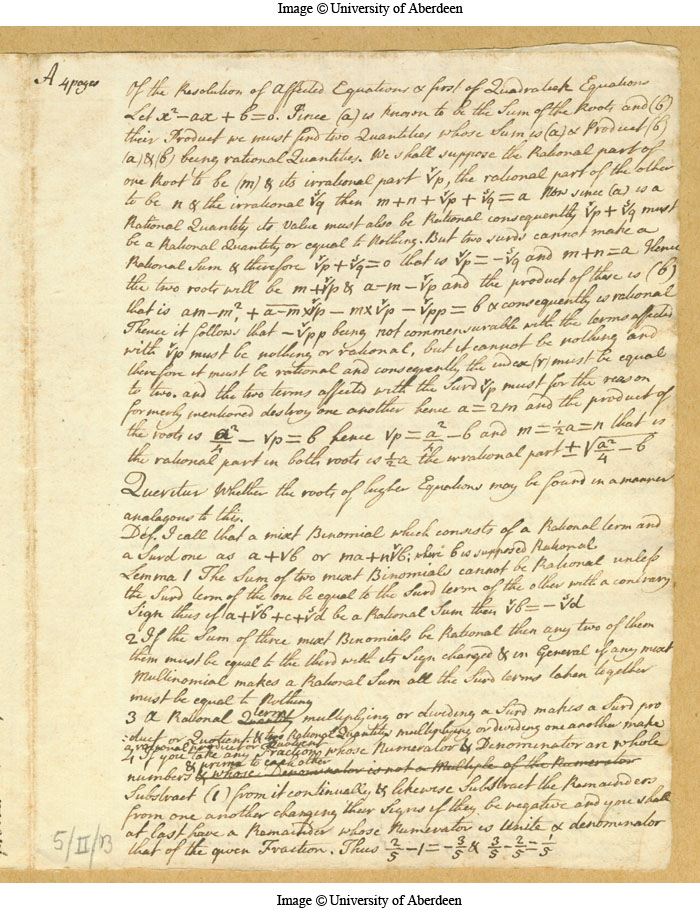 Image © University of Aberdeen
A 4 pages
Of the Resolution of Affected Equations & first of Quadratick Equations
Let x² - ax + b = 0. Since (a) is known to be the Sum of the Roots and (b)
their Product we must find two Quantities whose Sum is (a) & Product (b)
(a) & (b) being rational Quantities. We shall suppose the Rational part of
one Root to be (m) & its irrational part ʳ√p, the rational part of the other
to be n & the irrational ˢ√q then m + n + ʳ√p + ˢ√q = a Now since (a) is a
Rational Quantity its value must also be Rational consequently ʳ√p + ˢ√q must
be a Rational Quantity or equal to Nothing. But two surds cannot make a
Rational Sum & therefore ʳ√p + ˢ√q = 0 that is ʳ√p = -ˢ√q and m + n = a Hence
the two roots will be m + ʳ√p & a - m - ʳ√p and the product of these is (b)
that is am - m² + a - m × ʳ√p - m × ʳ√p - ʳ√pp = b & consequently is rational
Thence it follows that - ʳ√pp being not commensurable with the terms affected
with ʳ√p must be nothing or rational, but it cannot be nothing and
therefore it must be rational and consequently the index (r) must be equal
to two. and the two terms affected with the Surd ʳ√p must for the reason
formerly mentioned destroy one another hence a = 2m and the product of
the roots is a²/4 - √p = b hence √p = a²/4 - b and m = ½a = n that is
the rational part in both roots is ½a the irrational part ± √a²/4 - b
Queritur Whether the roots of higher Equations may be found in a manner
analagous to this.
Def. I call that a mixt Binomial which consists of a Rational term and
a Surd one as a + √b or ma + n√b; where b is supposed Rational
Lemma 1 The Sum of two mixt Binomials cannot be Rational unless
the Surd term of the one be equal to the Surd term of the other with a contrary
Sign thus if a + ʳ√b + c + ˢ√d be a Rational Sum then ʳ√b = -ˢ√d
2 If the Sum of three mixt Binomials be Rational then any two of them
them must be equal to the third with its Sign changed & in General if any mixt
Multinomial makes a Rational Sum all the Surd terms taken together
must be equal to Nothing
3 A Rational Quantity term multiplying or dividing a Surd makes a Surd pro
-duct or Quotient & two Rational Quantitys multiplying or dividing one another make
a rational product or Quotient
4 If you take any Fraction whose Numerator & Denominator are whole
numbers & prime to each other & whose Denominator is not a Multiple of the Numerator
Substract (1) from it continually & likewise Substract the Remainders
from one another changing their Signs if they be negative and you shall
at last have a Remainder whose Numerator is Unite & denominator
that of the given Fraction. Thus 2/5 - 1 = -3/5 & 3/5 - 2/5 = 1/5
5/II/13
Image © University of Aberdeen